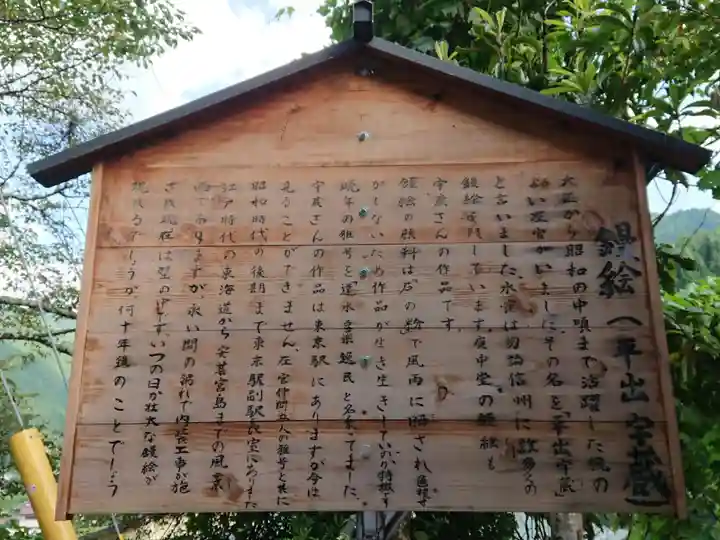 鏝絵(平出宇蔵)
大正から昭和の中頃まで活躍した腕の
いい左官がいましたその名を「平出宇蔵」
と言いました。水窪は勿論信州に数多くの
鏝絵を残しています。庚申堂の鏝絵も
宇蔵さんの作品です。
鏝絵の顔料は「石の粉」で風雨に晒され色褪せ
がしないため作品が生き生きしているのが特徴です
晩年の雅号を「蓬水、親民と名乗ってました。
宇蔵さんの作品は東京駅にありますが今は
見ることができません。左官仲間五人の雅号と共に
昭和時代の後期まで東京駅副駅長室にありました
江戸時代の東海道から安芸宮島までの風景
画でありますが、永い間の汚れで内装工事が施
され現在は壁の下です、いつの日か壮大な鏝絵が
現れるでしょうが、何十年後のことでしょう